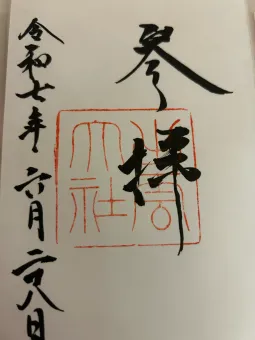 参拝
大社
令和七年六月二十八日